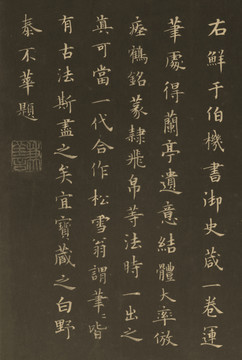 右鮮于伯機書御史箴一卷運
筆處得蘭亭遺意結體大率倣
瘞鶴銘篆隸飛帛等法時一出之
真可當一代合作松雪翁謂筆〻皆
有古法斯盡之矣宜寶藏之白野
泰不華題